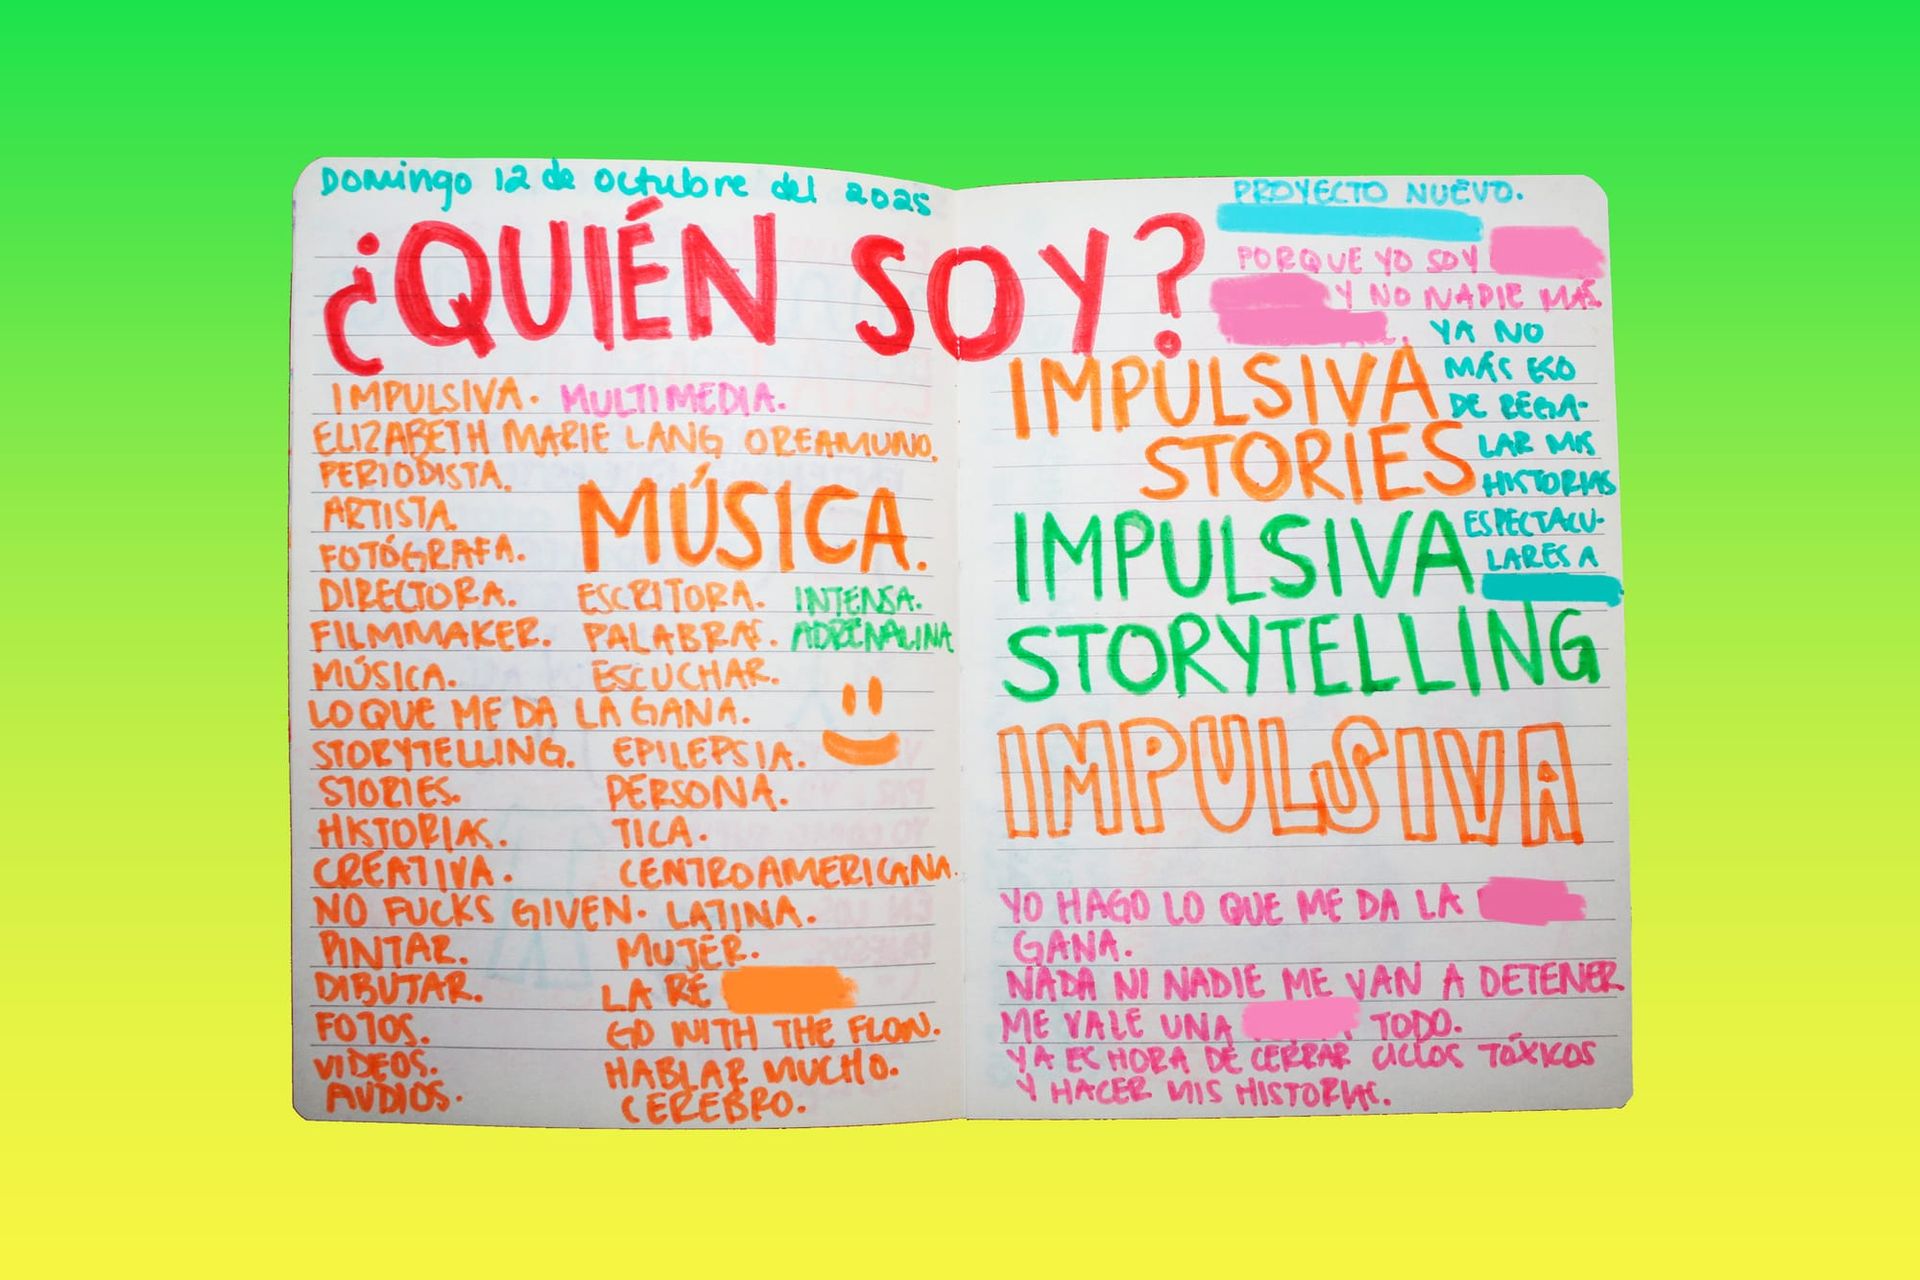 Domingo 12 de octubre del 2025
¿QUIÉN SOY?
IMPULSIVA. MULTIMEDIA.
ELIZABETH MARIE LANG OREAMUNO.
PERIODISTA.
ARTISTA.
FOTÓGRAFA.
MÚSICA.
DIRECTORA. ESCRITORA. INTENSA.
FILMMAKER. PALABRAS. ADRENALINA
MÚSICA. ESCUCHAR.
LO QUE ME DA LA GANA.
STORYTELLING. EPILEPSIA.
STORIES. PERSONA.
HISTORIAS. TICA.
CREATIVA. CENTROAMERICANA.
NO FUCKS GIVEN. LATINA.
PINTAR. MUJER.
DIBUJAR. LA RE
FOTOS. GO WITH THE FLOW.
VIDEOS. HABLAR MUCHO.
AUDIOS. CEREBRO.
PROYECTO NUEVO.
PORQUE YO SOY
Y NO NADIE MÁS
YA NO
MÁS ESO
DE REGA-
LAR MIS
HISTORIAS
ESPECTACU-
LARES A
IMPULSIVA
STORIES
IMPULSIVA
STORYTELLING
IMPULSIVA
YO HAGO LO QUE ME DA LA
GANA.
NADA NI NADIE ME VAN A DETENER
ME VALE UNA TODO.
YA ES HORA DE CERRAR CICLOS TÓXICOS
Y HACER MIS HISTORIAS.